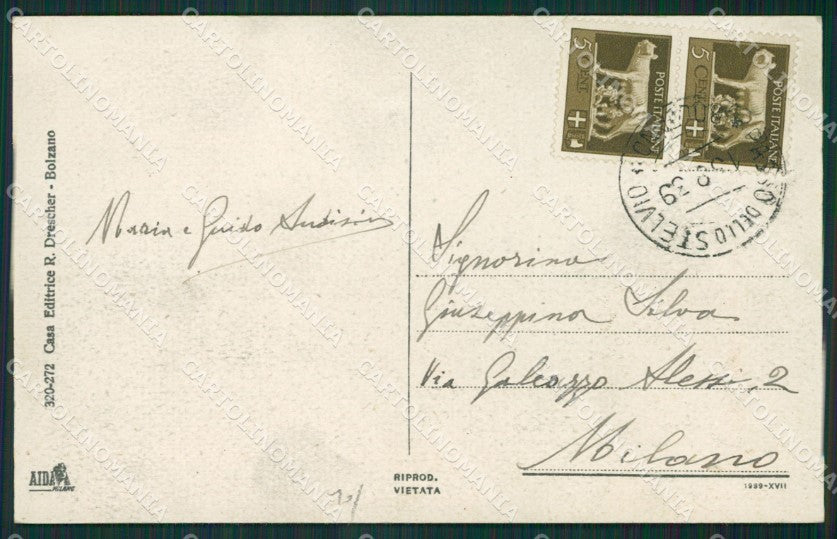 5 CENT.
POSTE ITALIANE
5 CENT.
POSTE ITALIANE
DELLO STELVIO
39
Maria e Guido Audisio
Signorina
Giuseppina Silva
Via Galeazzo Alessi, 2
Milano
320-272 Casa Editrice R. Drescher - Bolzano
AIDA
MILANO
RIPROD.
VIETATA
1939-XVII
CARTOLINOMANIA